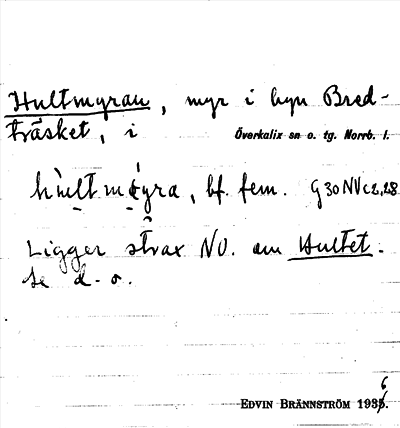 Hultmyran, myr i byn Bred-
träsket, i Överkalix sn o. tg. Norrb. l.
bf. fem. G30NVc2,28
Ligger strax NO. om Hultet.
Se d. o.
EDVIN BRÄNNSTRÖM 1936.